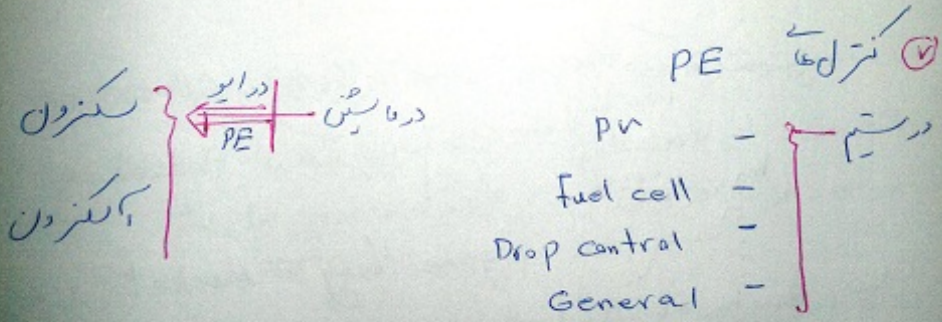 ۷ کنترل های PE
در سیستم - PV
- Fuel cell
- Drop control
- General
در ماشین درایو PE
سنکرون
آسنکرون